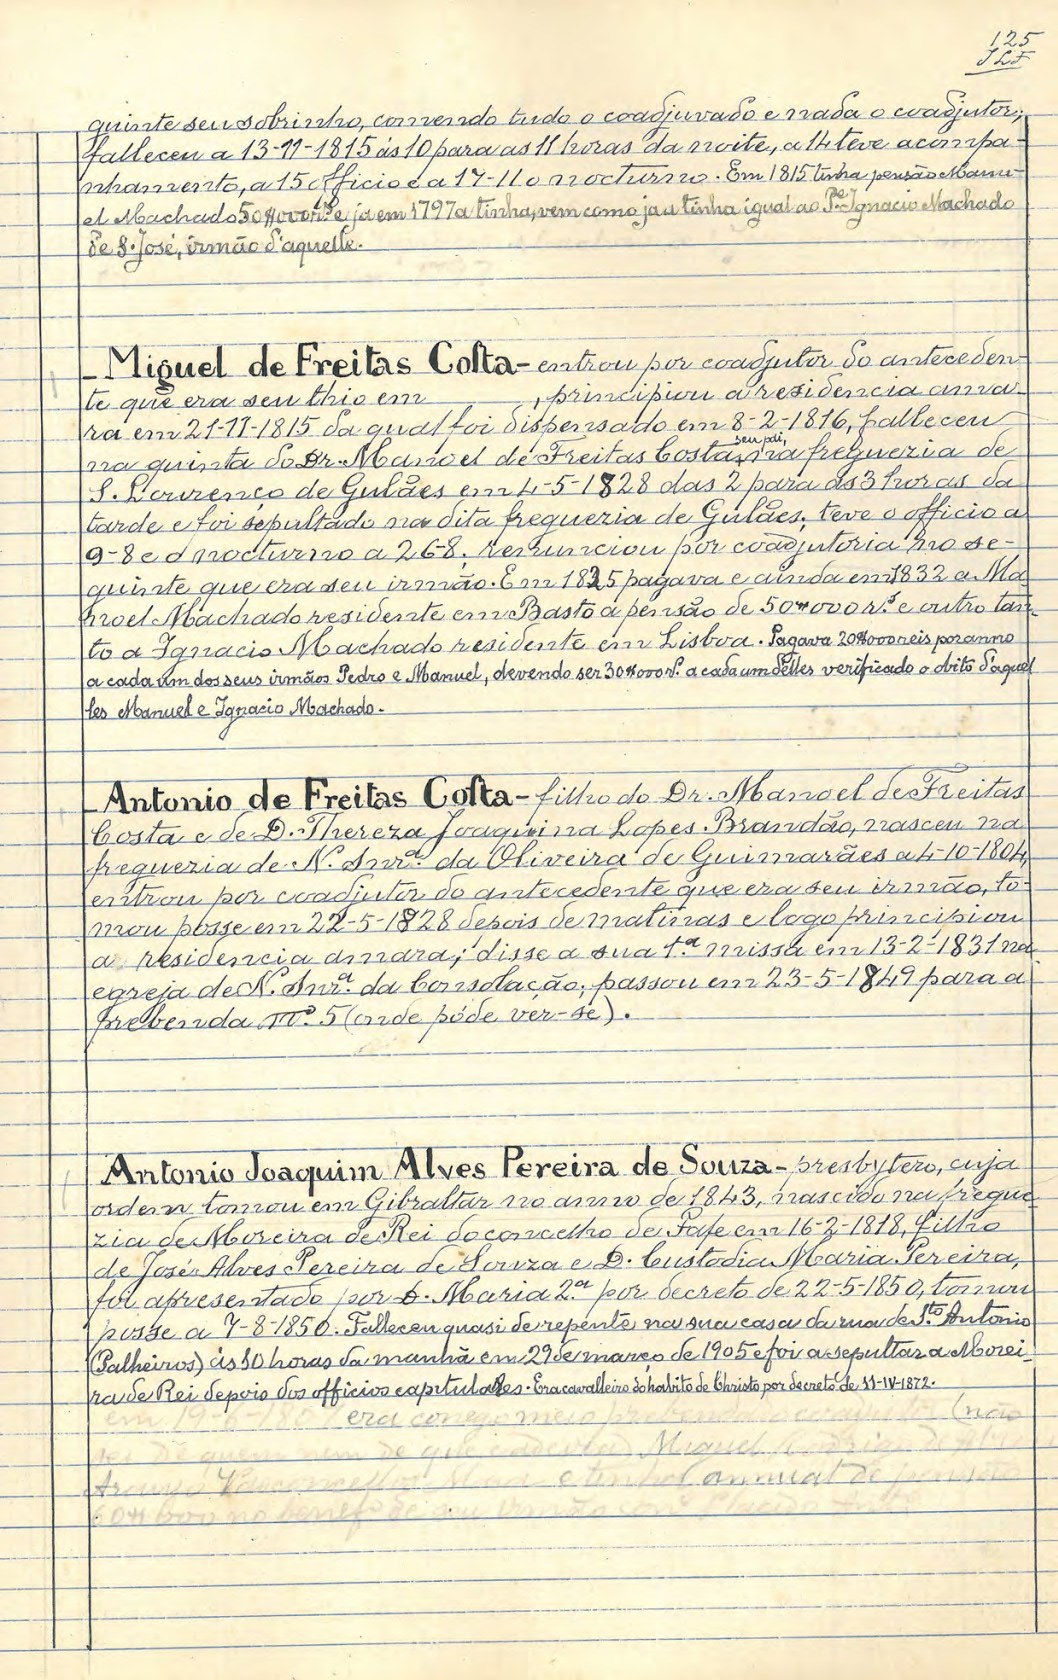 125
JLF
quinte seu sobrinho, comendo tudo o coadjuvado e nada o coadjutor;
falleceu a 13-11-1815 ás 10 para as 11 horas da noite, a 14 teve acompa-
nhamento, a 15 officio e a 17-11 o nocturno. Em 1815 tinha pensão Manu-
el Machado 50$000 rs. e já em 1797 a tinha, vem como já a tinha igual ao Pe. Ignacio Machado
de S. José, irmão d'aquelle.
– Miguel de Freitas Costa – entrou por coadjutor do anteceden-
te que era seu thio em , principiou a residencia ama-
ra em 21-11-1815 da qual foi dispensado em 8-2-1816, falleceu
na quinta do Dr. Manoel de Freitas Costa, seu pai, na freguezia de
S. Lourenço de Gulães em 4-5-1828 das 2 para as 3 horas da
tarde e foi sepultado na dita freguezia de Gulães; teve o officio a
9-8 e o nocturno a 26-8; renunciou por coadjutoria no se-
quinte que era seu irmão. Em 1825 pagava e ainda em 1832 a Ma
noel Machado residente em Basto a pensão de 50$000 rs. e outro tan-
to a Ignacio Machado residente em Lisboa. Pagava 20$000 reis por anno
a cada um dos seus irmãos Pedro e Manuel, devendo ser 30$000 rs. a cada um d'elles verificado o obito d'aquel
les Manuel e Ignacio Machado.
– Antonio de Freitas Costa – filho do Dr. Manoel de Freitas
Costa e de D. Thereza Joaquina Lopes Brandão, nasceu na
freguezia de N. Snrª. da Oliveira de Guimarães a 4-10-1804,
entrou por coadjutor do antecedente que era seu irmão, to-
mou posse em 22-5-1828 depois de matinas e logo principiou
a residencia amara; disse a sua 1.ª missa em 13-2-1831 na
egreja de N. Snrª. da Consolação; passou em 23-5-1849 para a
prebenda nº. 5 (onde póde ver-se).
Antonio Joaquim Alves Pereira de Souza – presbytero, cuja
ordem tomou em Gibraltar no anno de 1843, nascido na fregue-
zia de Moreira de Rei do concelho de Fafe em 16-2-1818, filho
de José Alves Pereira de Souza e D. Custodia Maria Pereira,
foi apresentado por D. Maria 2.ª por decreto de 22-5-1850, tomou
posse a 7-8-1850. Falleceu quasi de repente na sua casa da rua de Sto. Antonio
(Palheiros) ás 10 horas da manhã em 29 de março de 1905 e foi a sepultar a Morei-
ra de Rei depois dos officios capitulares. Era cavalleiro do habito de Christo por decreto de 11-IV-1872.
era conego meio (não
de quem nem de que Miguel
e tinha annual de